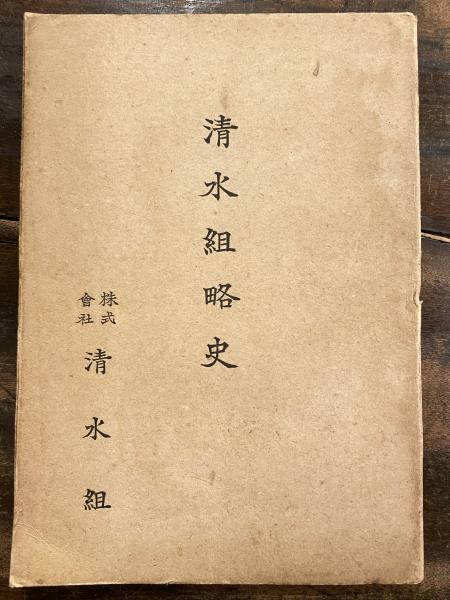 清水組略史
株式會社 清水組